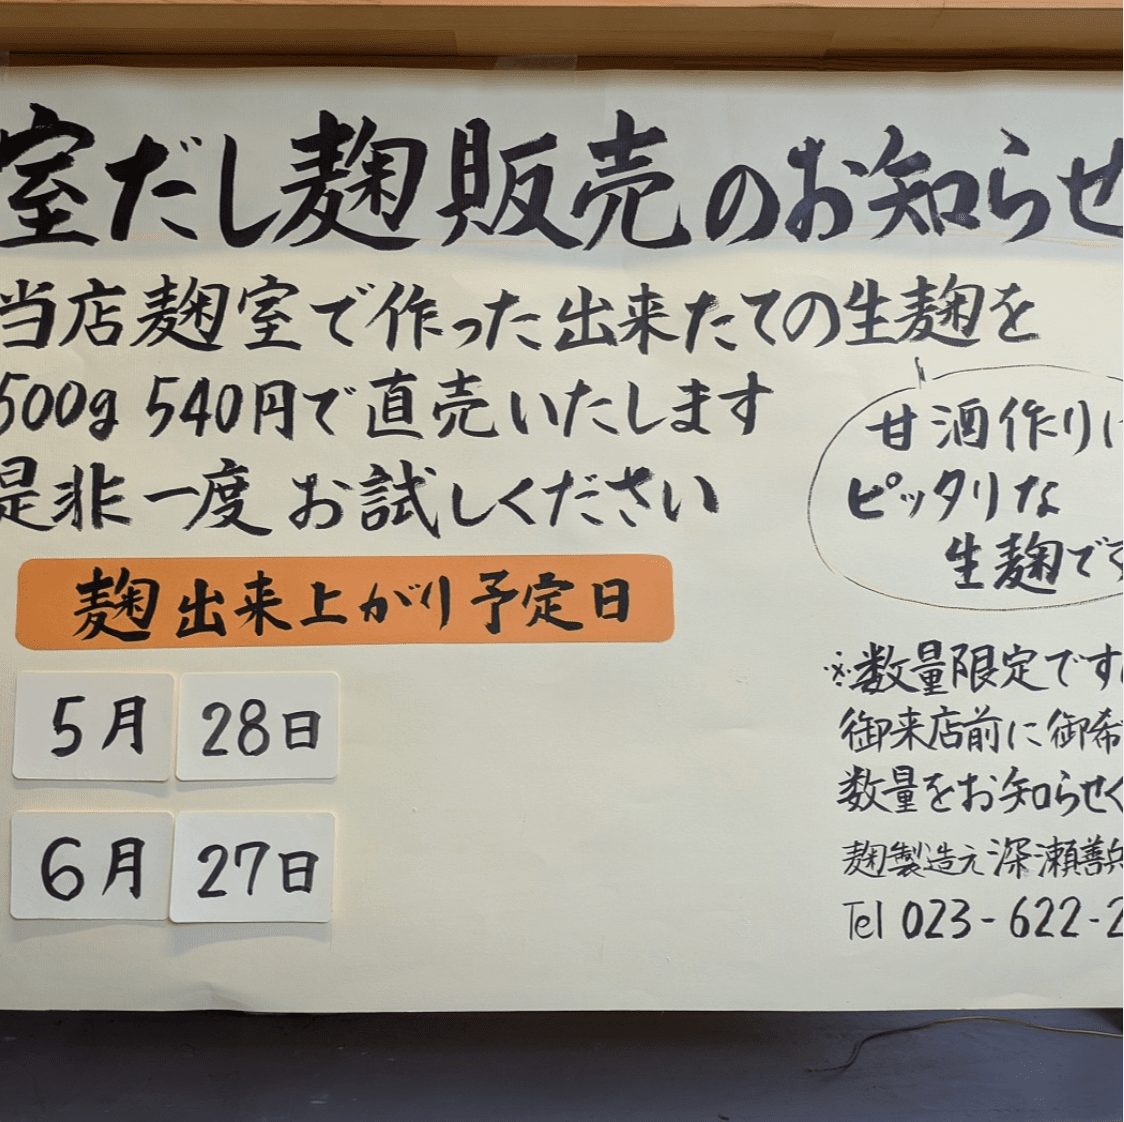 室だし麹販売のお知らせ
当店麹室で作った出来たての生麹を
500g 540円で直売いたします
是非一度お試しください
甘酒作りに
ピッタリな
生麹です
麹出来上がり予定日
5月 28日
6月 27日
※数量限定です
御来店前に御希
数量をお知らせく
麹製造元 深瀬善兵
Tel 023-622-2